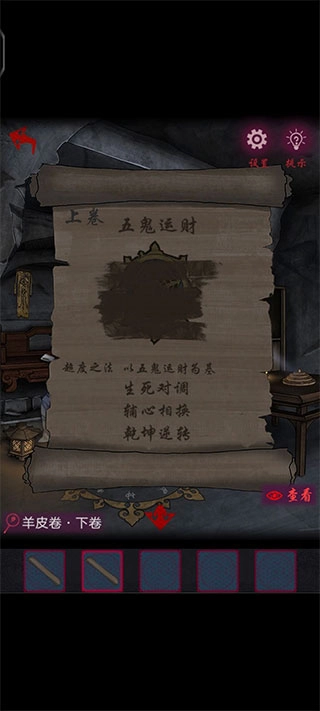 设置 提示
上卷
五鬼运财
超度之法 以五鬼运财为基
生死对调
辅心相换
乾坤逆转
查看
羊皮卷·下卷